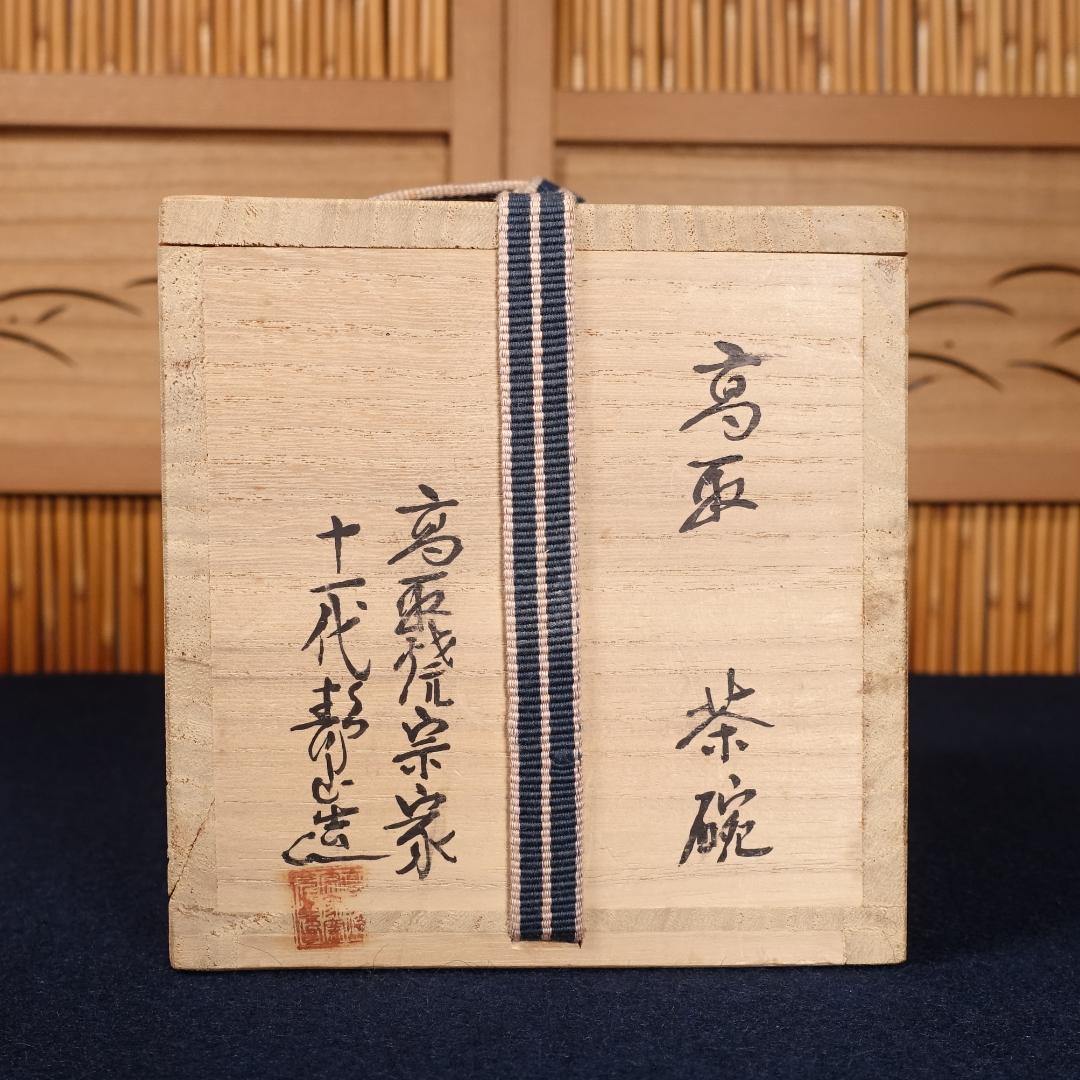 高取 茶碗
高取焼宗家
十一代静山造